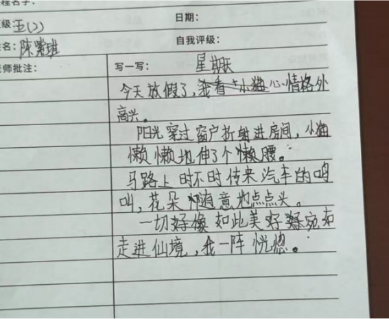 程名字：
级 五(2) 日期：
名：陈紫琪 自我评级：
老师批注： 写一写： 星期天
今天放假了，我看小猫心情格外
高兴。
阳光穿过窗户折射进房间，小猫
懒懒地伸了个懒腰。
马路上时不时传来汽车的鸣
叫，花朵随意地点点头。
一切好像如此美好宛如
走进仙境，我一阵恍惚。